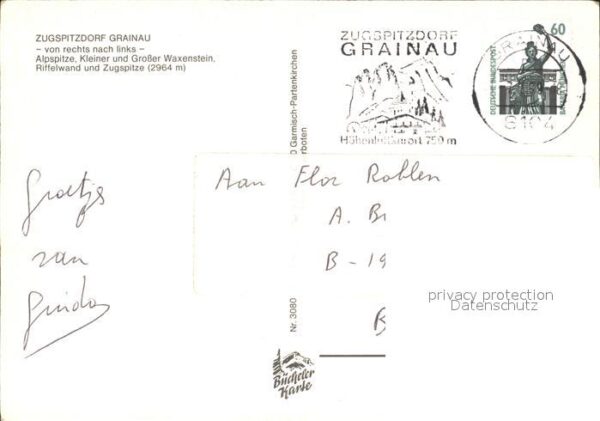 ZUGSPITZDORF GRAINAU
– von rechts nach links –
Alpspitze, Kleiner und Großer Waxenstein,
Riffelwand und Zugspitze (2964 m)
ZUGSPITZDORF
GRAINAU
Höhenluftkurort 750 m
60
DEUTSCHE BUNDESPOST
GRAINAU
8104
Garmisch-Partenkirchen
Groetjes
van
Guido
Aan Flor Roblen
A. B
B - 19
B
privacy protection
Datenschutz
Nr. 3080
Bücheler
Karte